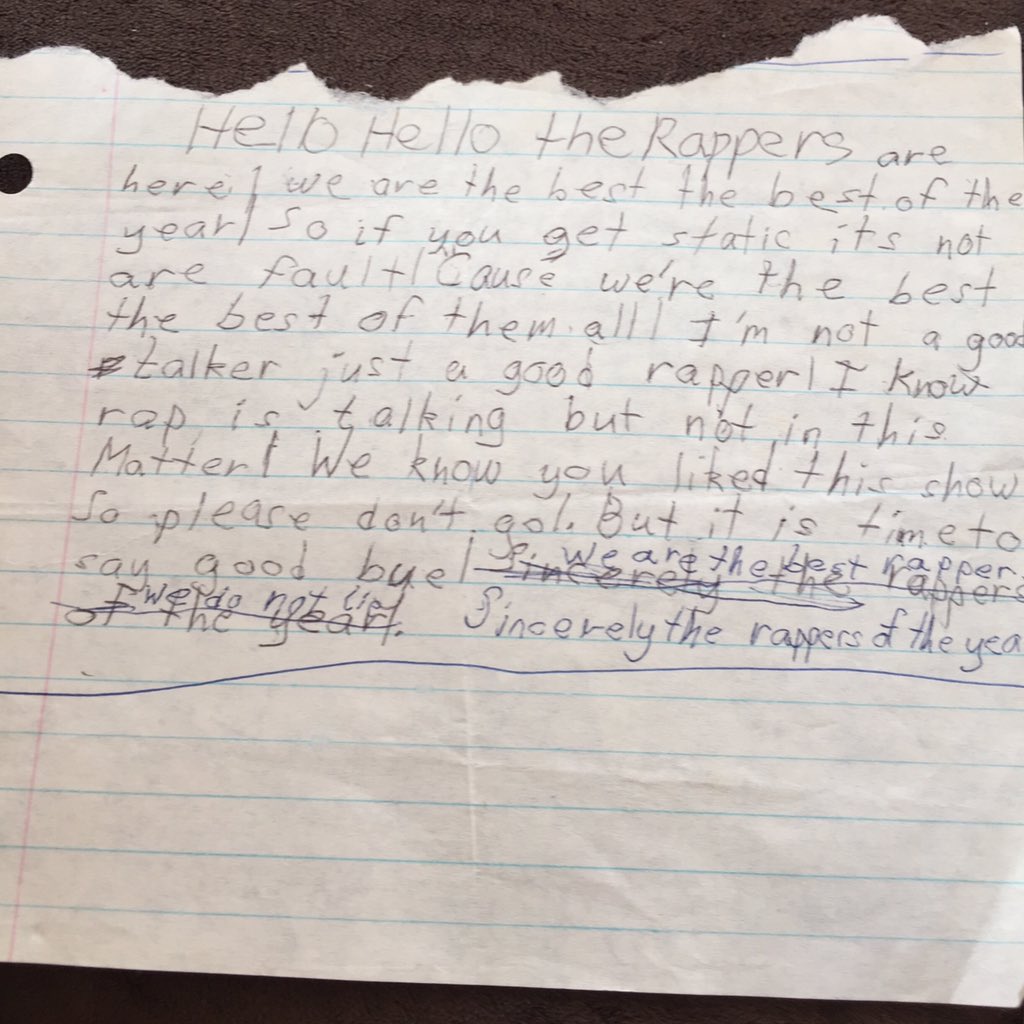 Hello Hello the Rappers are
here! we are the best the best of the
year! So if you get static it's not
are fault! Cause we're the best
the best of them all! I'm not a good
talker just a good rapper! I know
rap is talking but not in this
Matter! We know you liked this show
So please don't go!. But it is time to
say good bye! we are the best rapper.
Sincerely the rappers
we do not lie!
of the year!. Sincerely the rappers of the yea